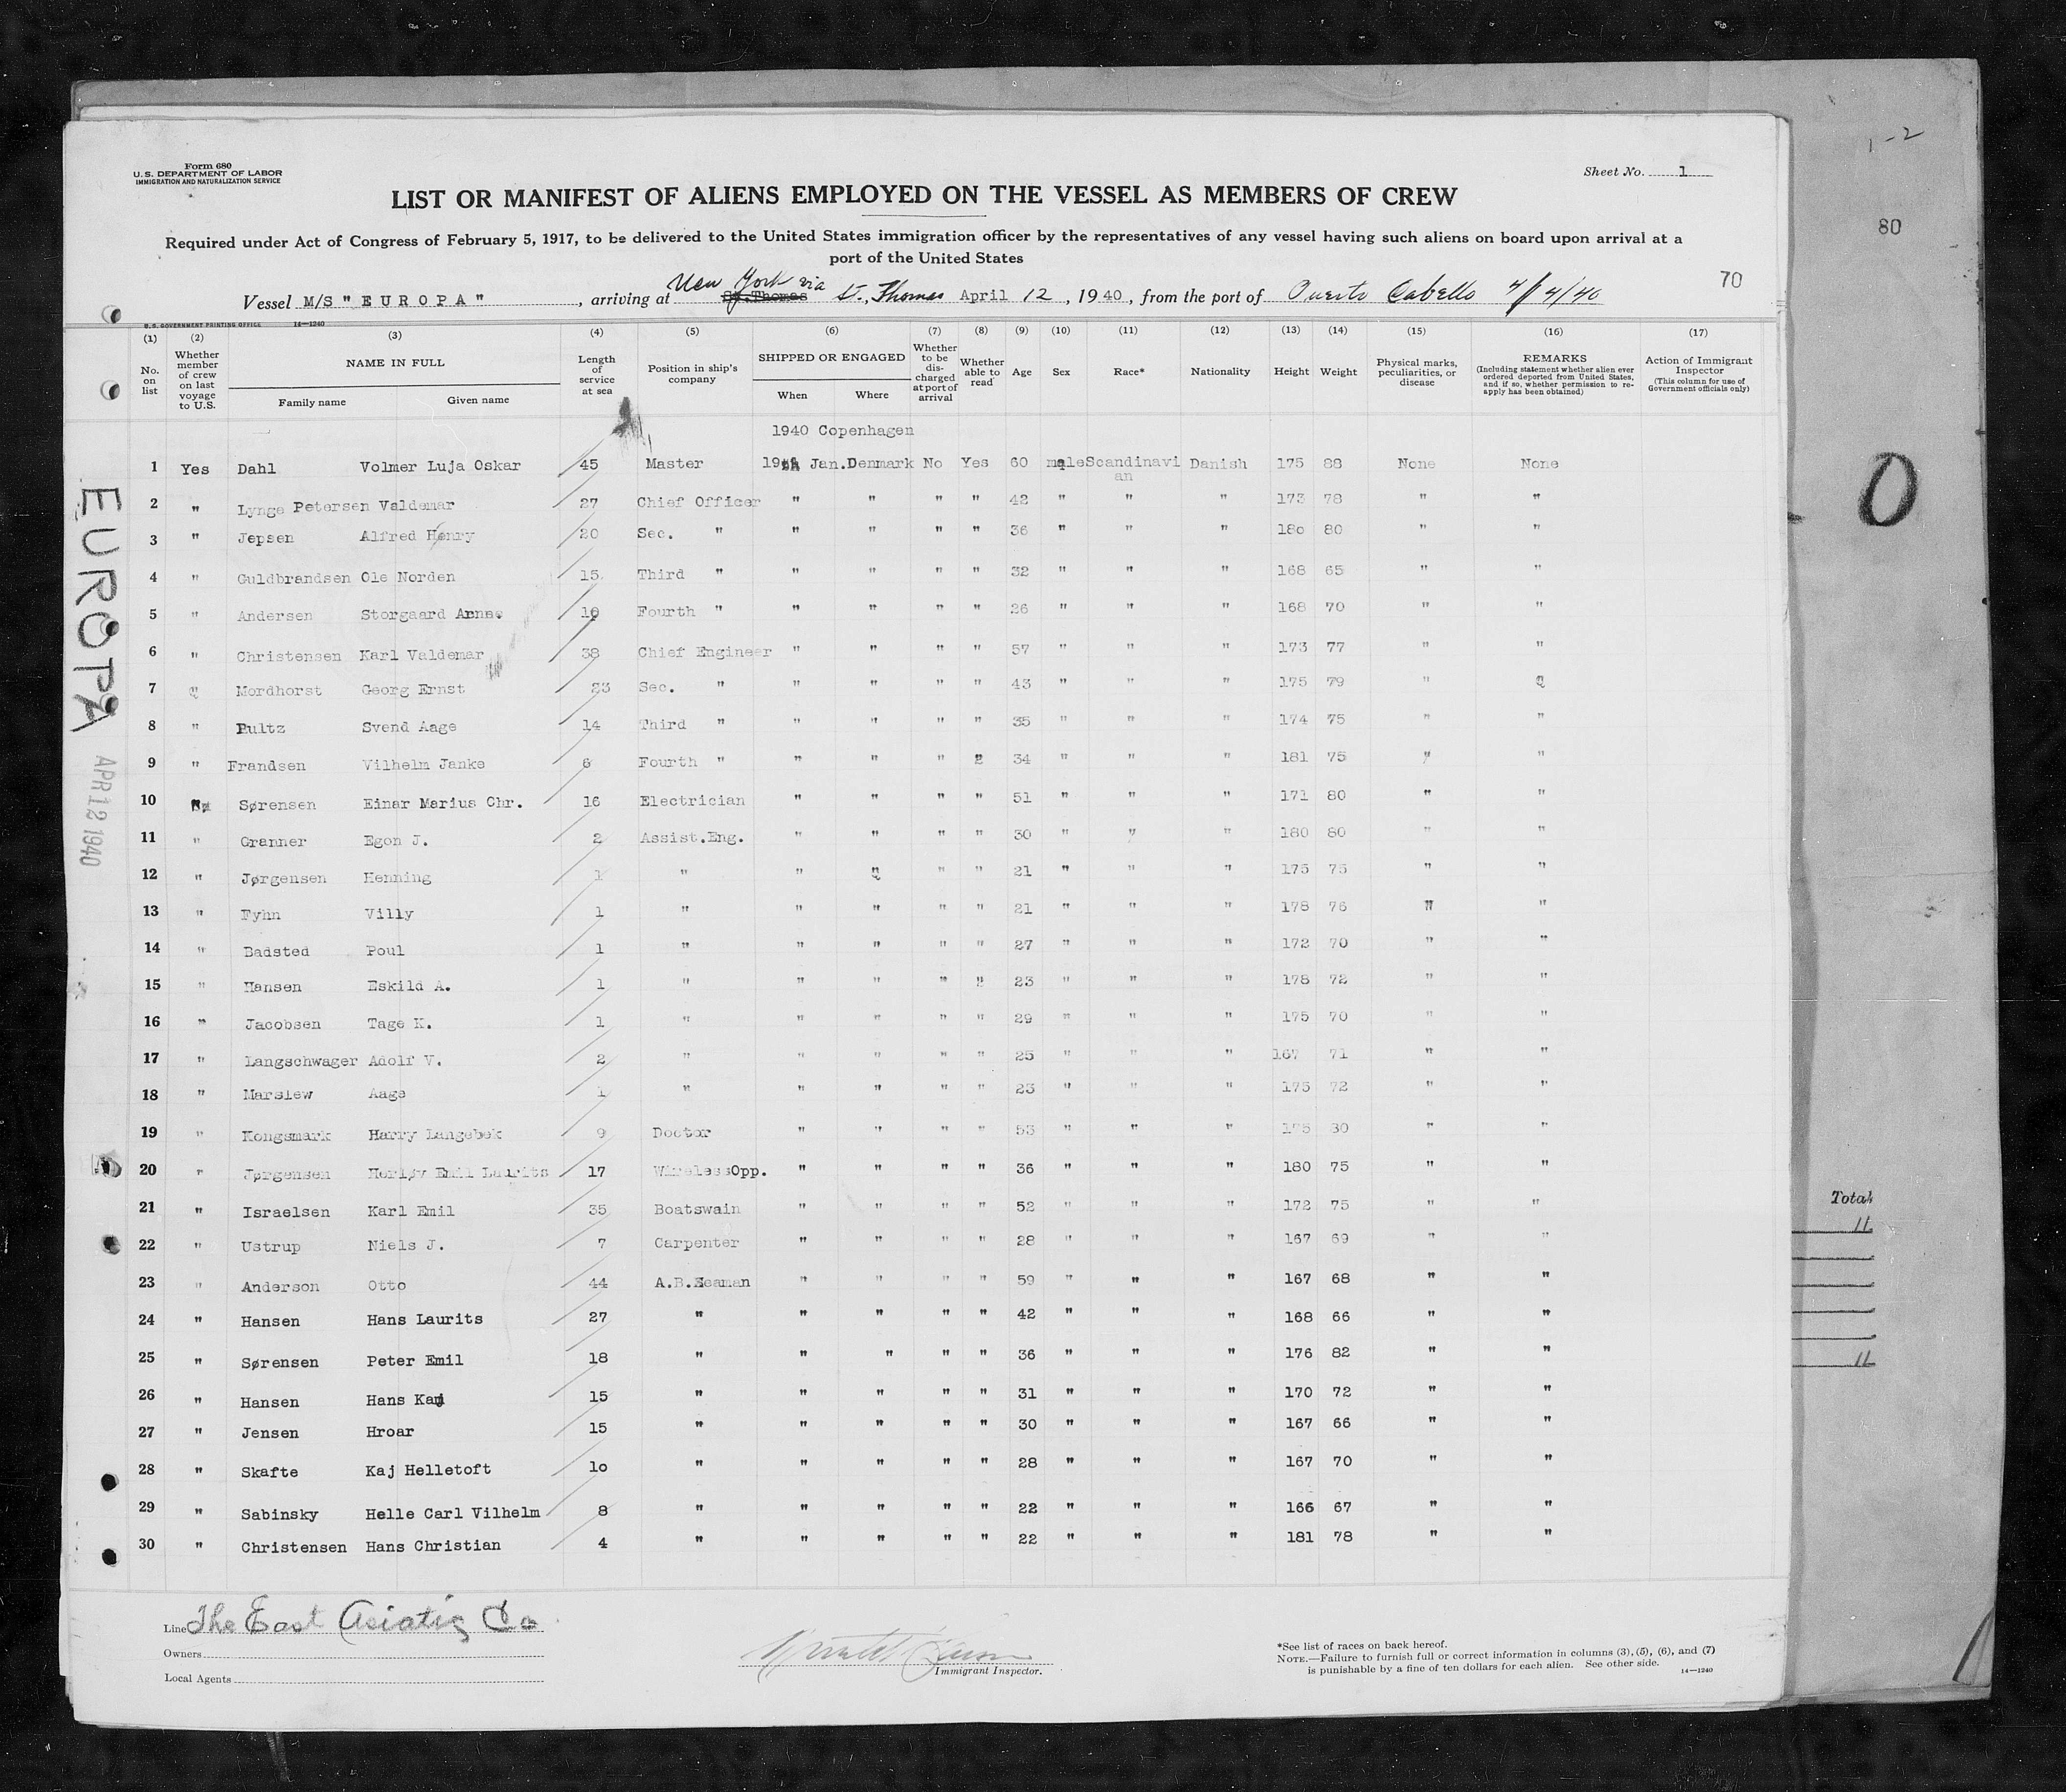 1-2
80
Form 680
U. S. DEPARTMENT OF LABOR
IMMIGRATION AND NATURALIZATION SERVICE
Sheet No. 1
LIST OR MANIFEST OF ALIENS EMPLOYED ON THE VESSEL AS MEMBERS OF CREW
Required under Act of Congress of February 5, 1917, to be delivered to the United States immigration officer by the representatives of any vessel having such aliens on board upon arrival at a
port of the United States
70
New York via
Vessel M/S "EUROPA", arriving at St. Thomas St., Thomas April 12, 1940, from the port of Puerto Cabello 4/4/40
U. S. GOVERNMENT PRINTING OFFICE 14—1240
(1) (2) (3) (4) (5) (6) (7) (8) (9) (10) (11) (12) (13) (14) (15) (16) (17)
No. on list
Whether member of crew on last voyage to U.S.
NAME IN FULL
Family name Given name
Length of service at sea
Position in ship's company
SHIPPED OR ENGAGED
When Where
Whether to be discharged at port of arrival
Whether able to read
Age
Sex
Race*
Nationality
Height
Weight
Physical marks, peculiarities, or disease
REMARKS
(Including statement whether alien ever ordered deported from United States, and if so, whether permission to reapply has been obtained)
Action of Immigrant Inspector
(This column for use of Government officials only)
1940 Copenhagen
1 Yes Dahl Volmer Luja Oskar 45 Master Jan. Denmark No Yes 60 male Scandinavian Danish 175 88 None None
2 " Lynge Petersen Valdemar 27 Chief Officer " " " " 42 " " " 173 78 " "
3 " Jepsen Alfred Henry 20 Sec. " " " " " 36 " " " 180 80 " "
4 " Guldbrandsen Ole Norden 15 Third " " " " " 32 " " " 168 65 " "
5 " Andersen Storgaard Arne. 10 Fourth " " " " " 26 " " " 168 70 " "
6 " Christensen Karl Valdemar 38 Chief Engineer " " " " 57 " " " 173 77 " "
7 " Mordhorst Georg Ernst 23 Sec. " " " " " 43 " " " 175 79 " "
8 " Pultz Svend Aage 14 Third " " " " " 35 " " " 174 75 " "
9 " Frandsen Vilhelm Janke 6 Fourth " " " " " 34 " " " 181 75 " "
10 No Sørensen Einar Marius Chr. 16 Electrician " " " " 51 " " " 171 80 " "
11 " Granner Egon J. 2 Assist.Eng. " " " " 30 " " " 180 80 " "
12 " Jørgensen Henning 1 " " " " " 21 " " " 175 75 " "
13 " Fyhn Villy 1 " " " " " 21 " " " 178 76 " "
14 " Badsted Poul 1 " " " " " 27 " " " 172 70 " "
15 " Hansen Eskild A. 1 " " " " " 23 " " " 178 72 " "
16 " Jacobsen Tage K. 1 " " " " " 29 " " " 175 70 " "
17 " Langschwager Adolf V. 2 " " " " " 25 " " " 167 71 " "
18 " Marslew Aage 1 " " " " " 23 " " " 175 72 " "
19 " Kongsmark Harry Langebek 9 Doctor " " " " 53 " " " " "
20 " Jørgensen Herløv Emil Laurits 17 WirelessOpp. " " " " 36 " " " 180 75 " "
21 " Israelsen Karl Emil 35 Boatswain " " " " 52 " " " 172 75 " "
22 " Ustrup Niels J. 7 Carpenter " " " " 28 " " " 167 69 " "
23 " Anderson Otto 44 A.B.Seaman " " " " 59 " " " 167 68 " "
24 " Hansen Hans Laurits 27 " " " " " 42 " " " 168 66 " "
25 " Sørensen Peter Emil 18 " " " " " 36 " " " 176 82 " "
26 " Hansen Hans Kaj 15 " " " " " 31 " " " 170 72 " "
27 " Jensen Hroar 15 " " " " " 30 " " " 167 66 " "
28 " Skafte Kaj Helletoft 10 " " " " " 28 " " " 167 70 " "
29 " Sabinsky Helle Carl Vilhelm 8 " " " " " 22 " " " 166 67 " "
30 " Christensen Hans Christian 4 " " " " " 22 " " " 181 78 " "
EUROPA
APR 12 1940
O
Total
11
11
Line The East Asiatic Co
Owners
Local Agents
Immigrant Inspector.
*See list of races on back hereof.
NOTE.—Failure to furnish full or correct information in columns (3), (5), (6), and (7)
is punishable by a fine of ten dollars for each alien. See other side.
14—1240